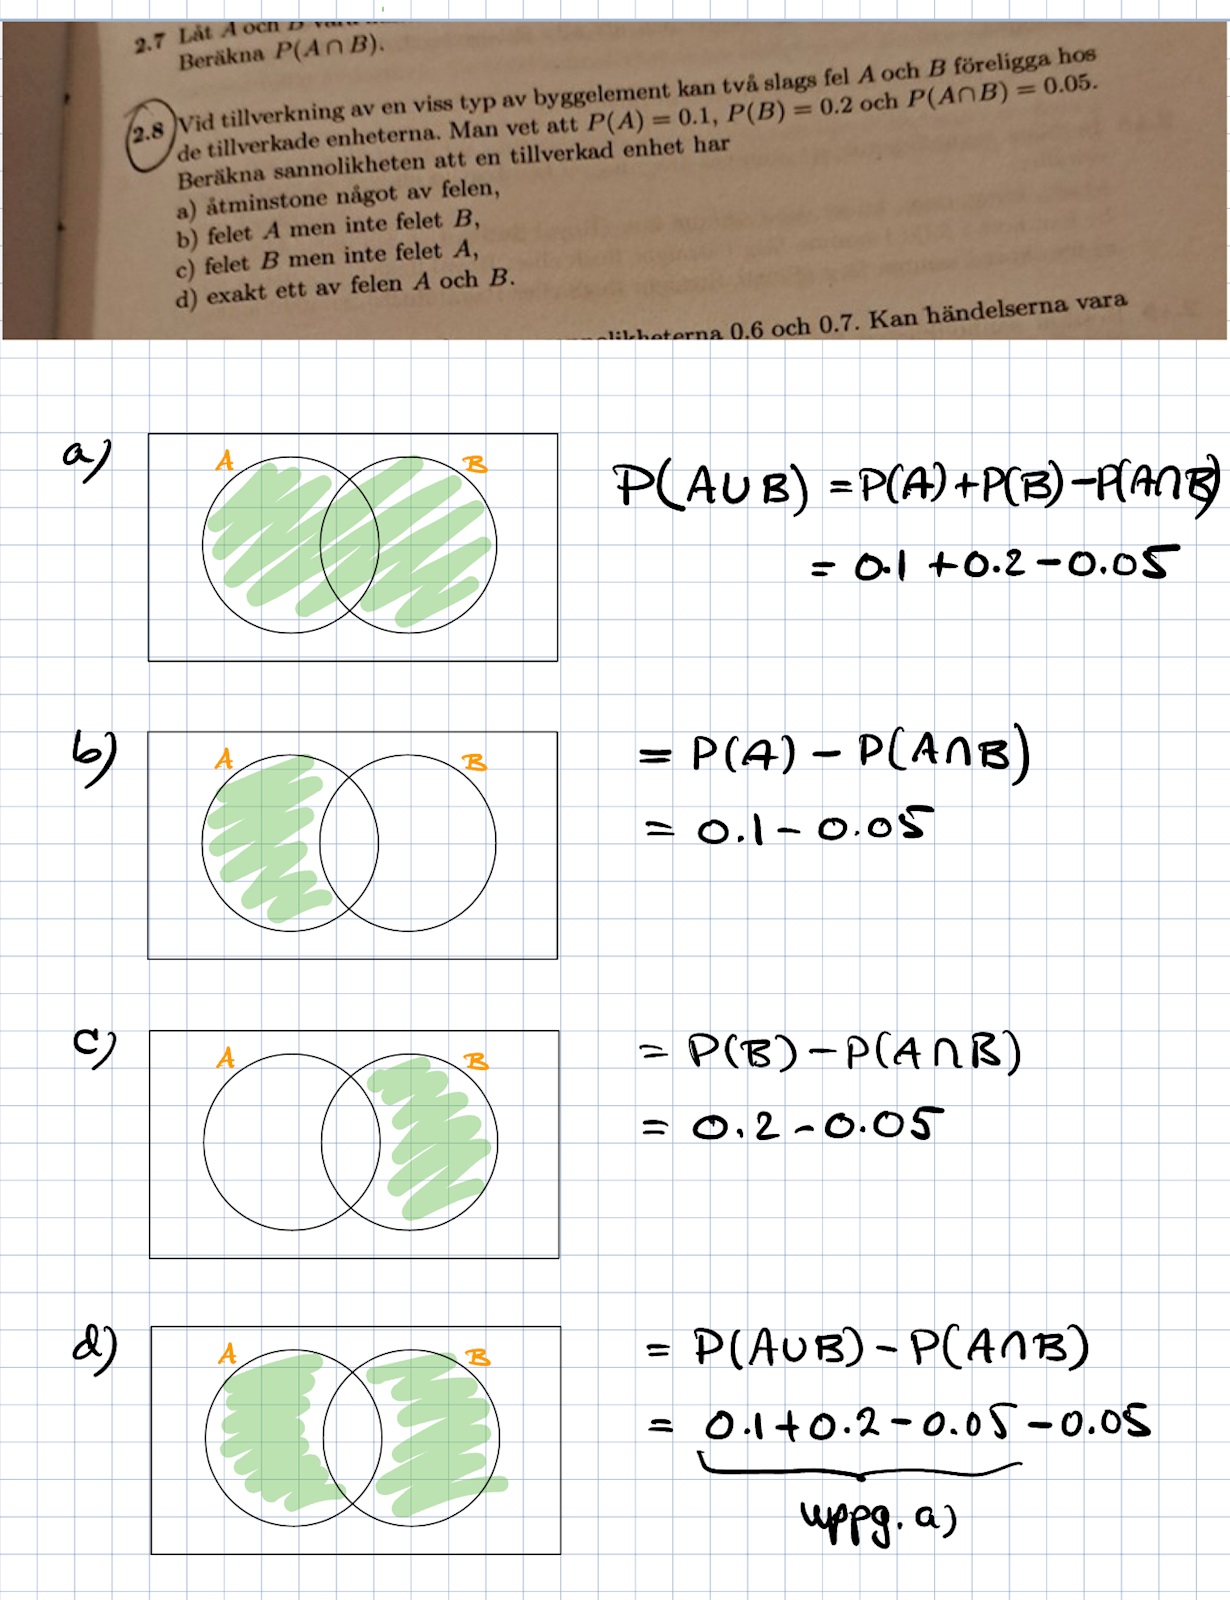 2.7 Låt A och B
Beräkna P(A ∩ B).
2.8 Vid tillverkning av en viss typ av byggelement kan två slags fel A och B föreligga hos
de tillverkade enheterna. Man vet att P(A) = 0.1, P(B) = 0.2 och P(A∩B) = 0.05.
Beräkna sannolikheten att en tillverkad enhet har
a) åtminstone något av felen,
b) felet A men inte felet B,
c) felet B men inte felet A,
d) exakt ett av felen A och B.
0.6 och 0.7. Kan händelserna vara
a)
A B
P(A∪B) = P(A)+P(B)-P(A∩B)
= 0.1 + 0.2 - 0.05
b)
A B
= P(A) - P(A∩B)
= 0.1 - 0.05
c)
A B
= P(B) - P(A∩B)
= 0.2 - 0.05
d)
A B
= P(A∪B) - P(A∩B)
= 0.1 + 0.2 - 0.05 - 0.05
uppg. a)